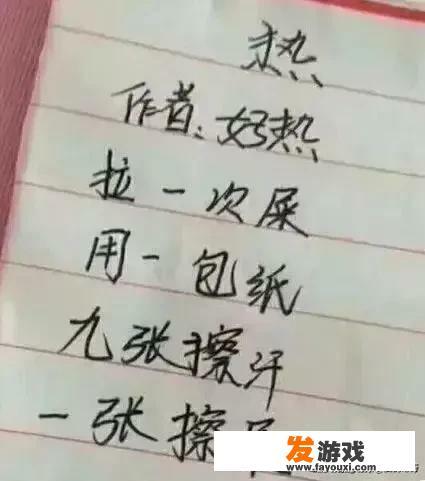 热
作者:好热
拉一次屎
用一包纸
九张擦汗
一张擦
发游戏
www.fayouxi.com